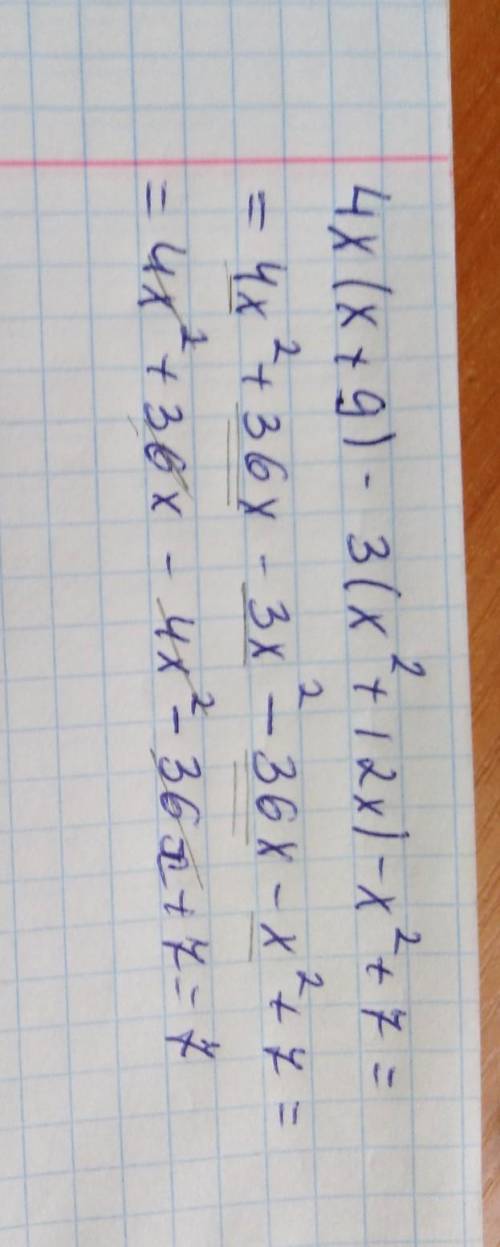 4x(x+9)-3(x²+12x)-x²+7=
=4x²+36x-3x²-36x-x²+7=
=4x²+36x-4x²-36x+7=7